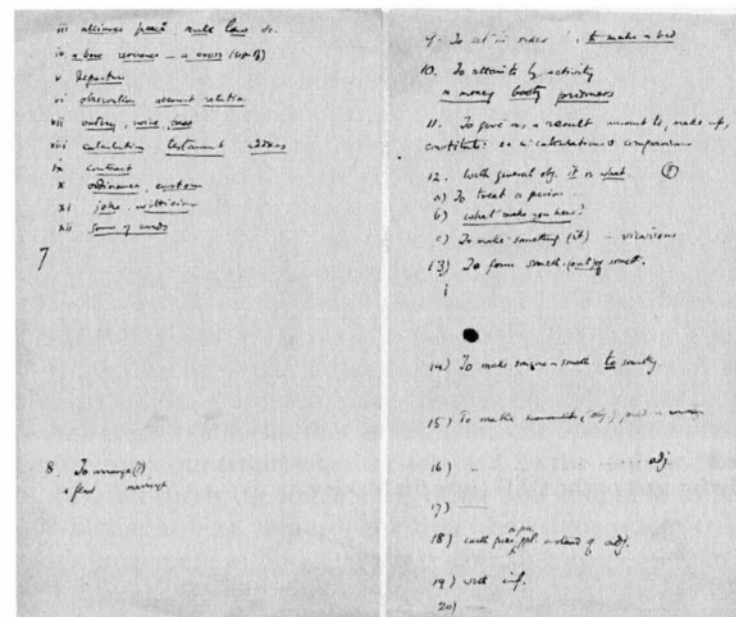 iii alliance peace rule law &c.
iv a bow reverence — a cross
v departure
vi observation relation
vii outcry, noise,
viii calculation testament address
ix contract
x ordinance, custom
xi joke, witticism
xii game of cards
7
8. To arrange (?)
a fleet arrange
9. To set in order to make a bed
10. To attain to by activity
money booty prisoners
11. To give as a result, amount to, make up,
constitute: calculations comparisons
12. With general obj. it or what (?)
a) To treat a person
b) what make you here?
c) To make something (it) —
13) To form someth. (out) of someth.
i
14) To make someth. to
15) To make
16) adj.
17) —
18) with ppl. instead of adj.
19) with inf.
20) —